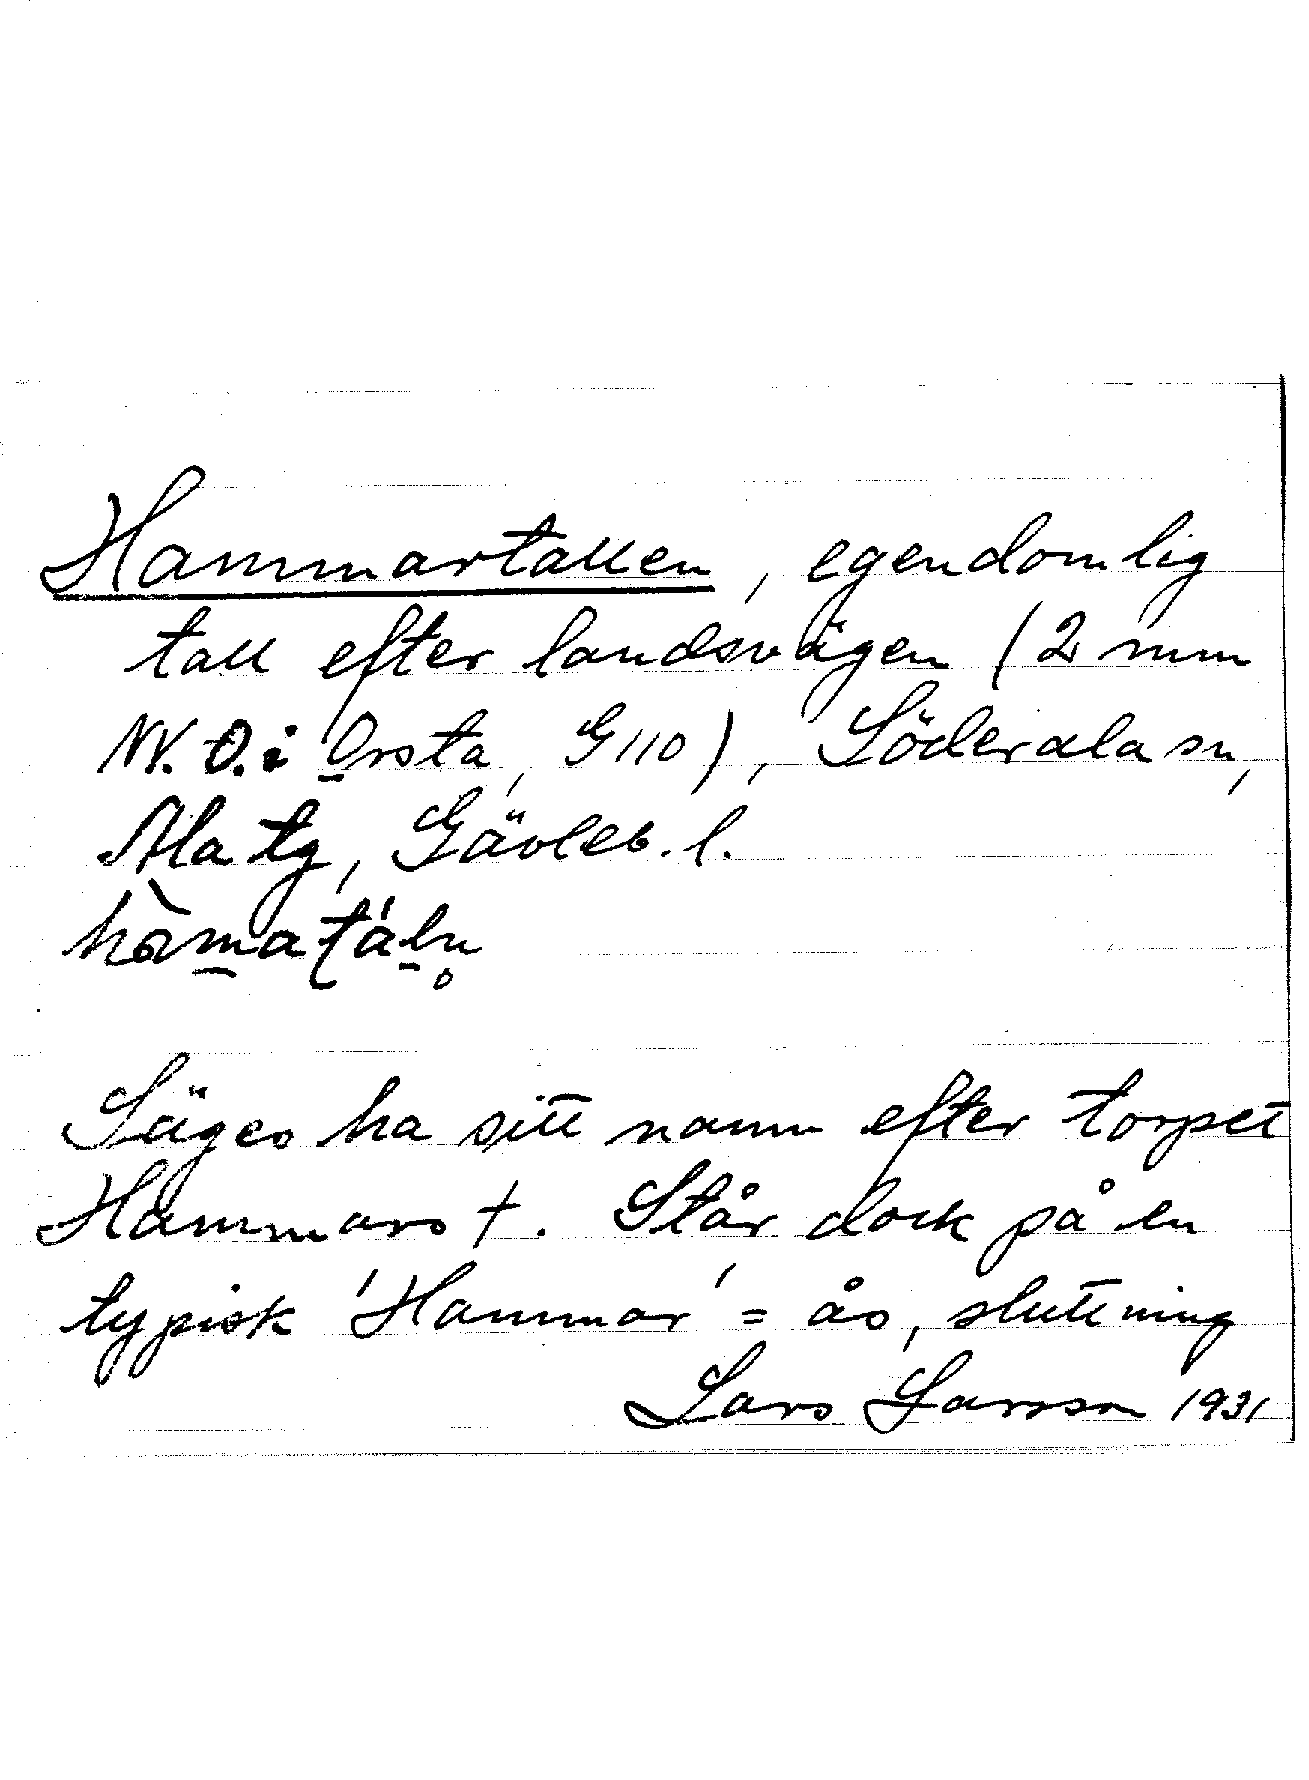 Hammartallen, egendomlig
tall efter landsvägen (2 mm
NV. O. i Orsta, G110), Söderala sn,
Ala tg, Gävleb. l.
hàmatáln̥
Säges ha sitt namn efter torpet
Hammars †. Står dock på en
typisk 'Hammar' = ås, sluttning
Lars Larsson 1931